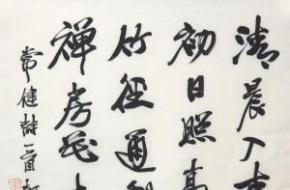 清晨入
初日照
竹徑通
禪房花
常健詩一首